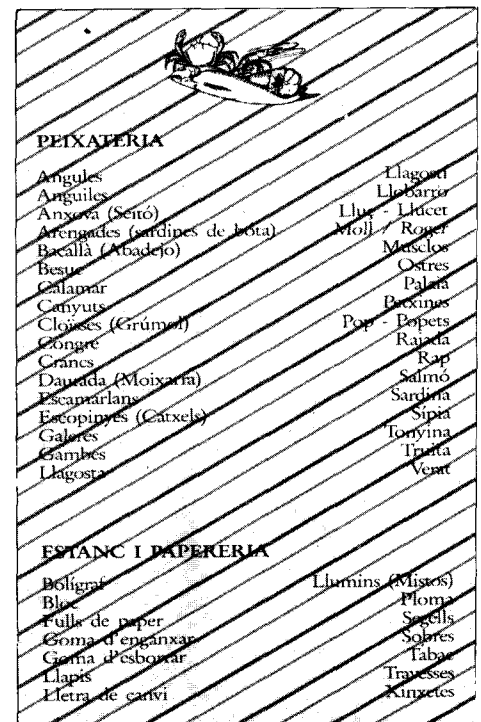 PEIXATERIA
Angules
Anguiles
Anxova (Seitó)
Arengades (sardines de bóta)
Bacallà (Abadejo)
Besuc
Calamar
Canyuts
Cloïsses (Grúmol)
Congre
Crancs
Daurada (Moixarra)
Escamarlans
Escopinyes (Catxels)
Galeres
Gambes
Llagosta
Llagostí
Llobarro
Lluç - Llucet
Moll / Roger
Musclos
Ostres
Palaia
Petxines
Pop - Popets
Rajada
Rap
Salmó
Sardina
Sípia
Tonyina
Truita
Verat
ESTANC I PAPERERIA
Bolígraf
Bloc
Fulls de paper
Goma d'enganxar
Goma d'esborrar
Llapis
Lletra de canvi
Llumins (Mistos)
Ploma
Segells
Sobres
Tabac
Travesses
Xinxetes